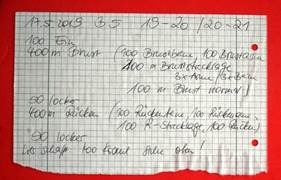 17.5.2019 35 19-20 /20-21
100 Ein
400 m Brust (100 Brustbeine, 100 Brustarme
100 m Bruststaklage
3x Arme / 3x Bein
100 m Brust normal)
50 locker
400 m Rücken (100 Rückenbeine, 100 Rückenarme
100 R-Staklage, 100 Rücken)
50 locker
100 Kraul siehe oben!